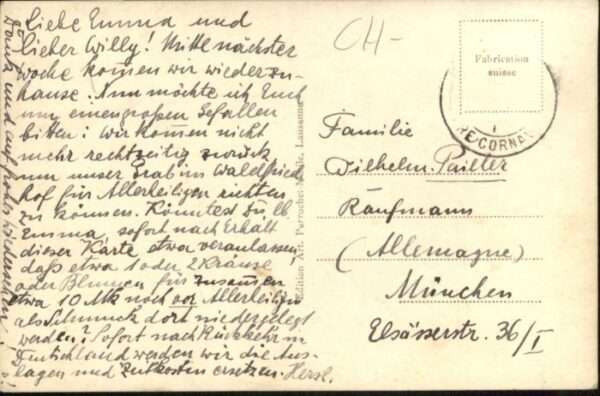 Liebe Emma und
lieber Willy! Mitte nächster
Woche kommen wir wieder zu-
hause. Nun möchte ich Euch
um einen großen Gefallen
bitten: wir kommen nicht
mehr rechtzeitig zurück
um unser Grab im Waldfried
hof für Allerheiligen richten
zu können. Könntest Du, lb.
Emma, sofort nach Erhalt
dieser Karte etwa veranlassen,
daß etwa 1 oder 2 Kränze
oder Blumen für zusammen
etwa 10 Mk noch vor Allerheiligen
als Schmuck dort niedergelegt
werden? Sofort nach Rückkehr in
Deutschland werden wir die Aus-
lagen und Unkosten ersetzen. Herzl.
Dank und auf frohes Wiedersehen!
Edition Art. Perrochet-Matile, Lausanne
CH-
Fabrication
suisse
Familie
Wilhelm
Kaufmann
(Allemagne)
München
Elsässerstr. 36/I